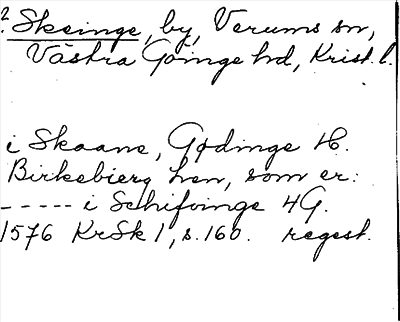 2. Skeinge, by, Verums sn,
Västra Göinge hd, Krist. l.
i Skaane, Gødinge H.
Birkebierg hen, som er:
----- i Schifvinge 4 G.
1576 KrSk 1, s. 160. regest.